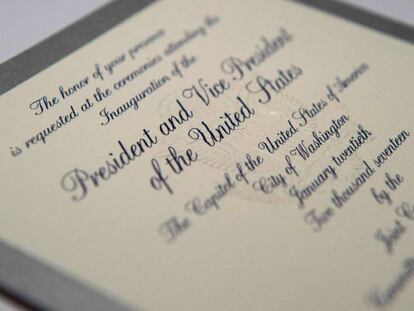 The honor of your presence
is requested at the ceremonies attending the
Inauguration of the
President and Vice President
of the United States
The Capitol of the United States of America
City of Washington
January twentieth
Two thousand seventeen
by the
Joint